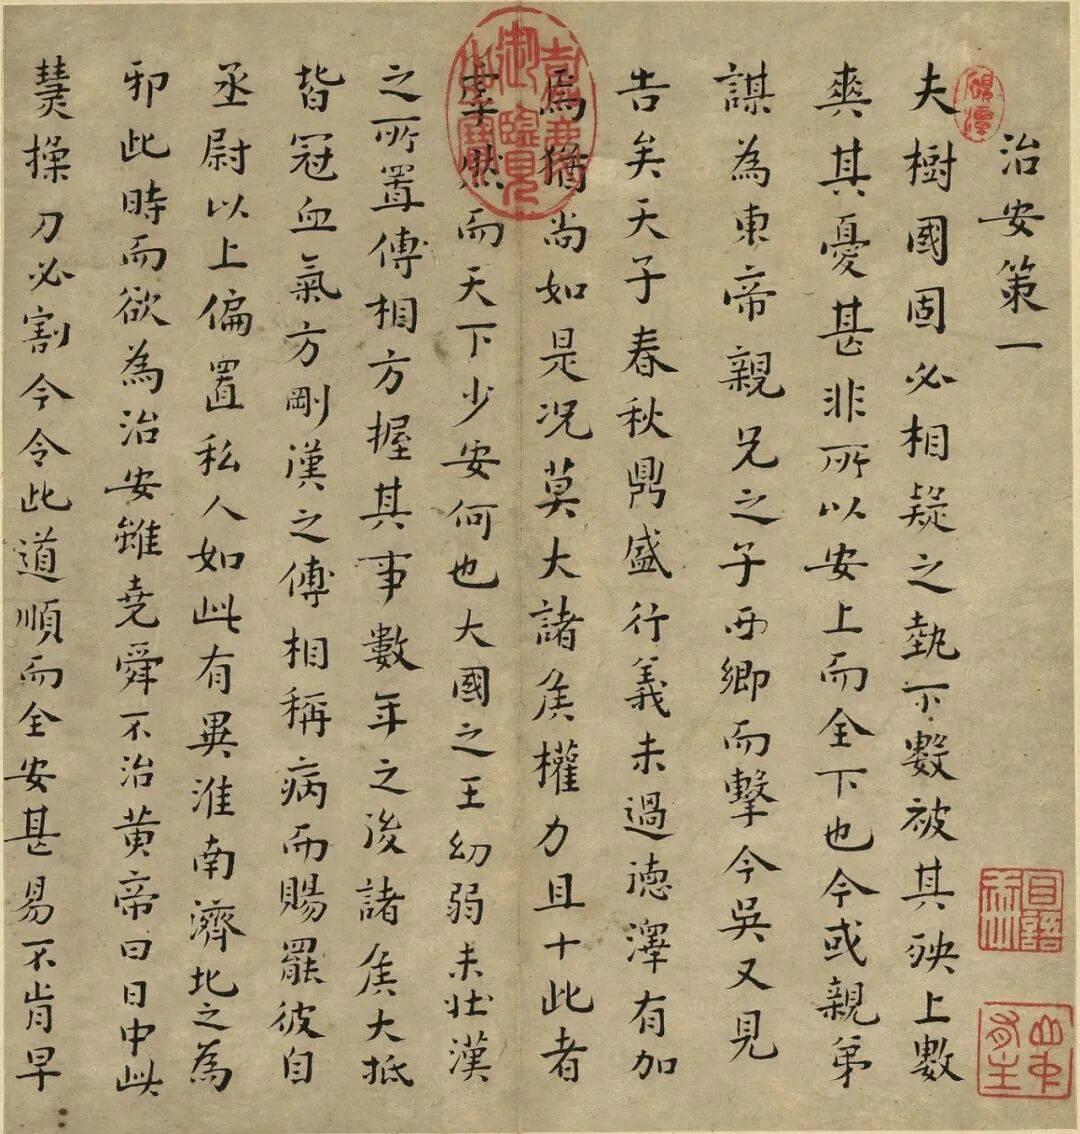 治安策一
夫樹國固必相疑之埶下數被其殃上數
爽其憂甚非所以安上而全下也今或親弟
謀為東帝親兄之子西鄉而擊今吳又見
告矣天子春秋鼎盛行義未過德澤有加
焉猶尚如是况莫大諸侯權力且十此者
虖然而天下少安何也大國之王幼弱未壯漢
之所置傅相方握其事數年之後諸侯大抵
皆冠血氣方剛漢之傅相稱病而賜罷彼自
丞尉以上偏置私人如此有異淮南濟北之為
邪此時而欲為治安雖堯舜不治黄帝曰日中此
熭操刀必割今令此道順而全安甚易不肯早
嘉慶御覽之寶